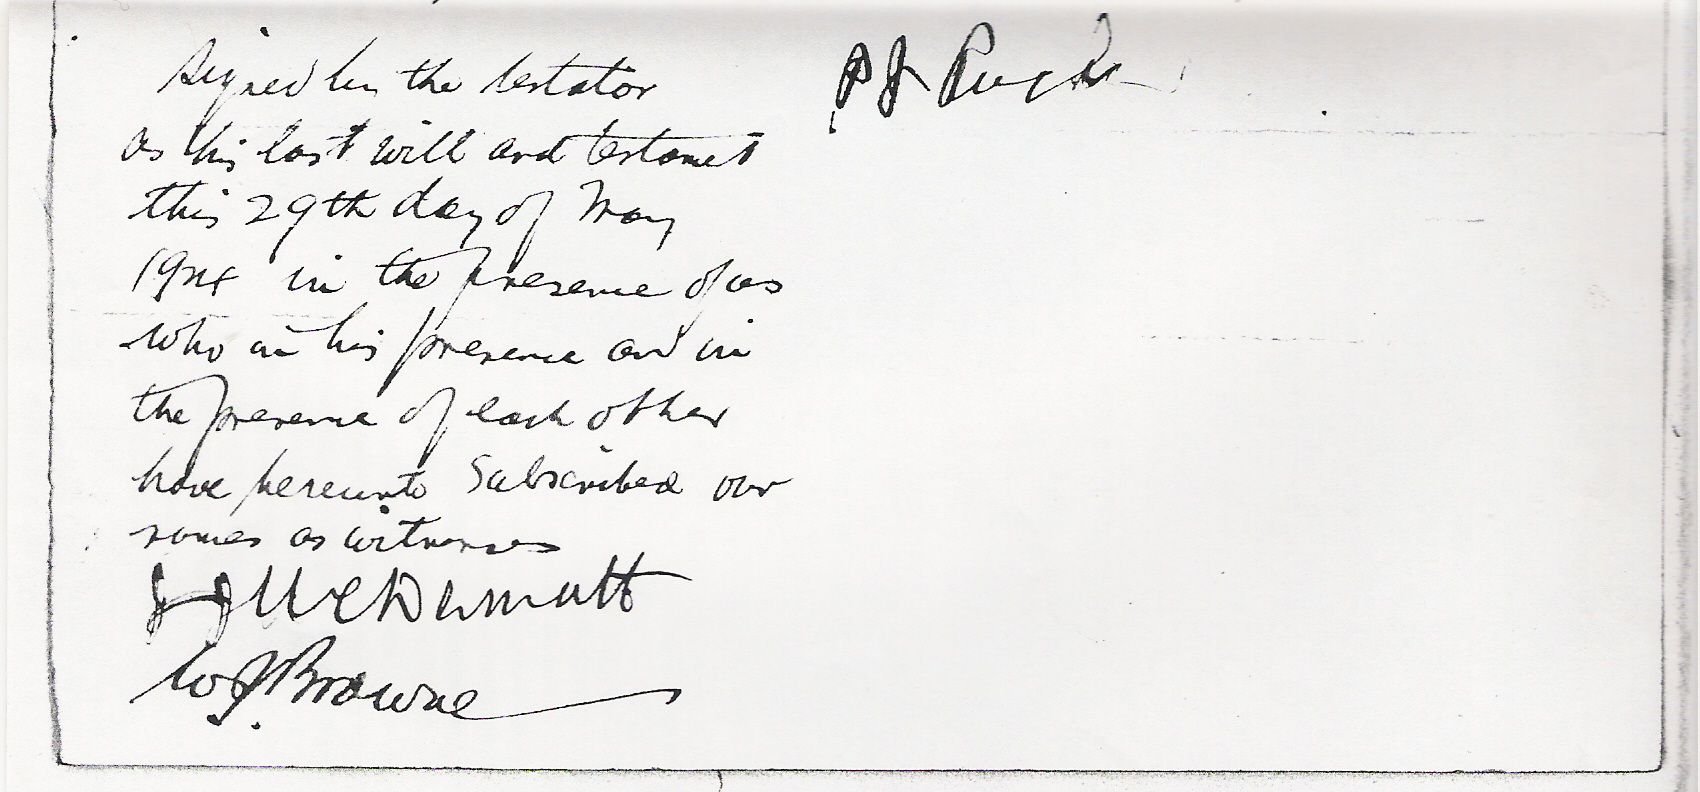 Signed by the testator
as his last will and testamet
this 29th day of May
in the presence of us
who in his presence and in
the presence of each other
have hereunto Subscribed our
names as witnesses
J J McDermott
W J. Browne
P J